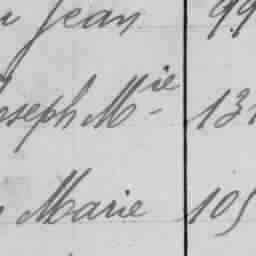 Jean 99
Joseph Mie 131
Marie 105